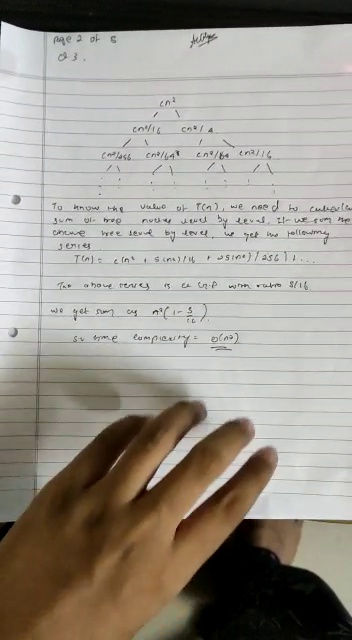 Page 2 of 8
Q 3.
cn²
cn²/16 cn²/4
cn²/256 cn²/64 cn²/64 cn²/16
: : : : : :
To know the value of T(n), we need to
sum of tree nodes level by level. If we sum the
above tree level by level, we get the following
series
T(n) = c(n² + 5(n²)/16 + 25(n²)/256) + ...
The above series is a G.P with ratio 5/16
we get sum as n²(1 - 5/16)
so time complexity = O(n²)